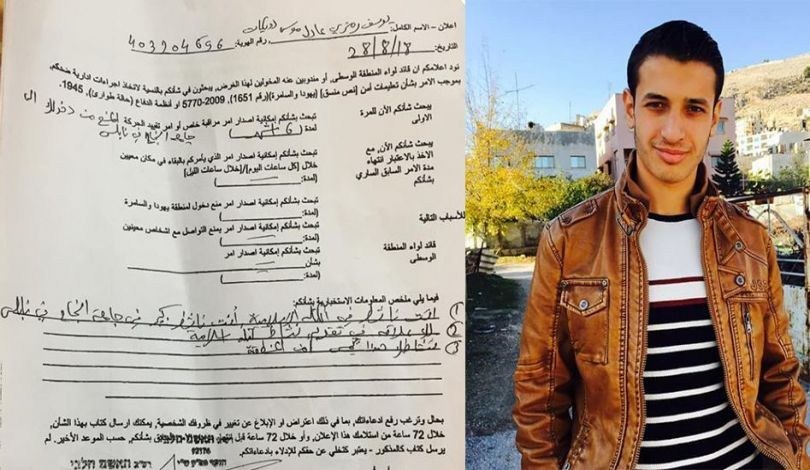 اعلان - الاسم الكامل: يوسف رمزي عادل موسى دويكات
رقم الهوية: 403204696
التاريخ: 28/8/18
نود اعلامكم ان قائد لواء المنطقة الوسطى, أو مندوبين عنه المخولين لهذا الغرض, يبحثون في شأنكم بالنسبة لاتخاذ اجراءات ادارية ضدكم,
بموجب الامر بشأن تعليمات أمن [نص منسق] (يهودا والسامرة)(رقم 1651), 5770-2009 او انظمة الدفاع (حالة طوارئ), 1945.
يبحث شأنكم الآن للمرة
الاولى
تبحث بشأنكم إمكانية اصدار امر مراقبة خاص أو امر تقييد الحركة
من دخولك الى
لمدة: 6 اشهر
يبحث شأنكم الآن, مع
الاخذ بالاعتبار انتهاء
مدة الامر السابق الساري
بشأنكم
تبحث بشأنكم إمكانية اصدار امر الذي يأمركم بالبقاء في مكان معيين
خلال [كل ساعات اليوم]/[خلال ساعات الليل]
(لمدة:
تبحث بشأنكم إمكانية اصدار امر منع دخول لمنطقة يهودا والسامرة
(لمدة:
للأسباب التالية
تبحث بشأنكم إمكانية اصدار امر يمنع التواصل مع اشخاص معينين
(لمدة:
قائد لواء المنطقة
الوسطى
تبحث بشأنكم إمكانية اصدار امر
بشأن
(لمدة:
فيما يلي ملخص المعلومات الاستخبارية بشأنكم:
1 انت ناشط في الكتلة الاسلامية أنت ناشط كبير في جامعة النجاح في نابلس
2
3
بحال وترغب رفع ادعاءاتك, بما في ذلك اعتراض او الإبلاغ عن تغيير في ظروفك الشخصية, يمكنك ارسال كتاب بهذا الشأن,
خلال 72 ساعة من استلامك هذا الإعلان, و/أو خلال 72 ساعة قبل
بشأنكم, حسب الموعد الأخير. لم
يرسل كتاب كالمذكور - يعتبر كتخلي عن حقكم للإدلاء بادعاءاتكم.
92176